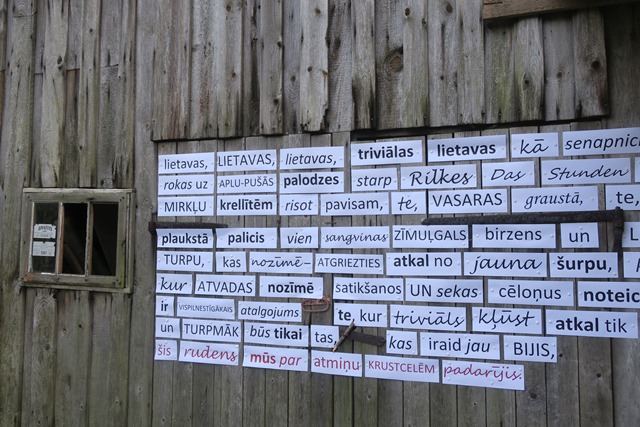 lietavas, LIETAVAS, lietavas, triviālas lietavas kā
rokas uz APLU-PUŠĀS palodzes starp Rilkes Das Stunden
MIRKĻU krellītēm risot pavisam, te, VASARAS graustā, te,
plaukstā palicis vien sangvinas ZĪMUĻGALS birzens un
TURPU, kas nozīmē- ATGRIEZTIES atkal no jauna šurpu,
kur ATVADAS nozīmē satikšanos UN sekas cēloņus
ir VISPILNESTĪGĀKAIS atalgojums te, kur triviāls kļūst atkal tik
un TURPMĀK būs tikai tas, kas iraid jau BIJIS,
šis rudens mūs par atmiņu KRUSTCELĒM padarījis.